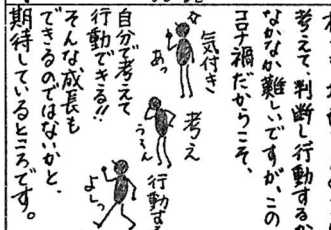 考えて、判断し行動するか
なかなか難しいですが、この
コロナ禍だからこそ、
気付き
あっ
考え
うーん
行動する
よしっ
自分で考えて
行動できる!!
そんな成長も
できるのではないかと、
期待しているところです。